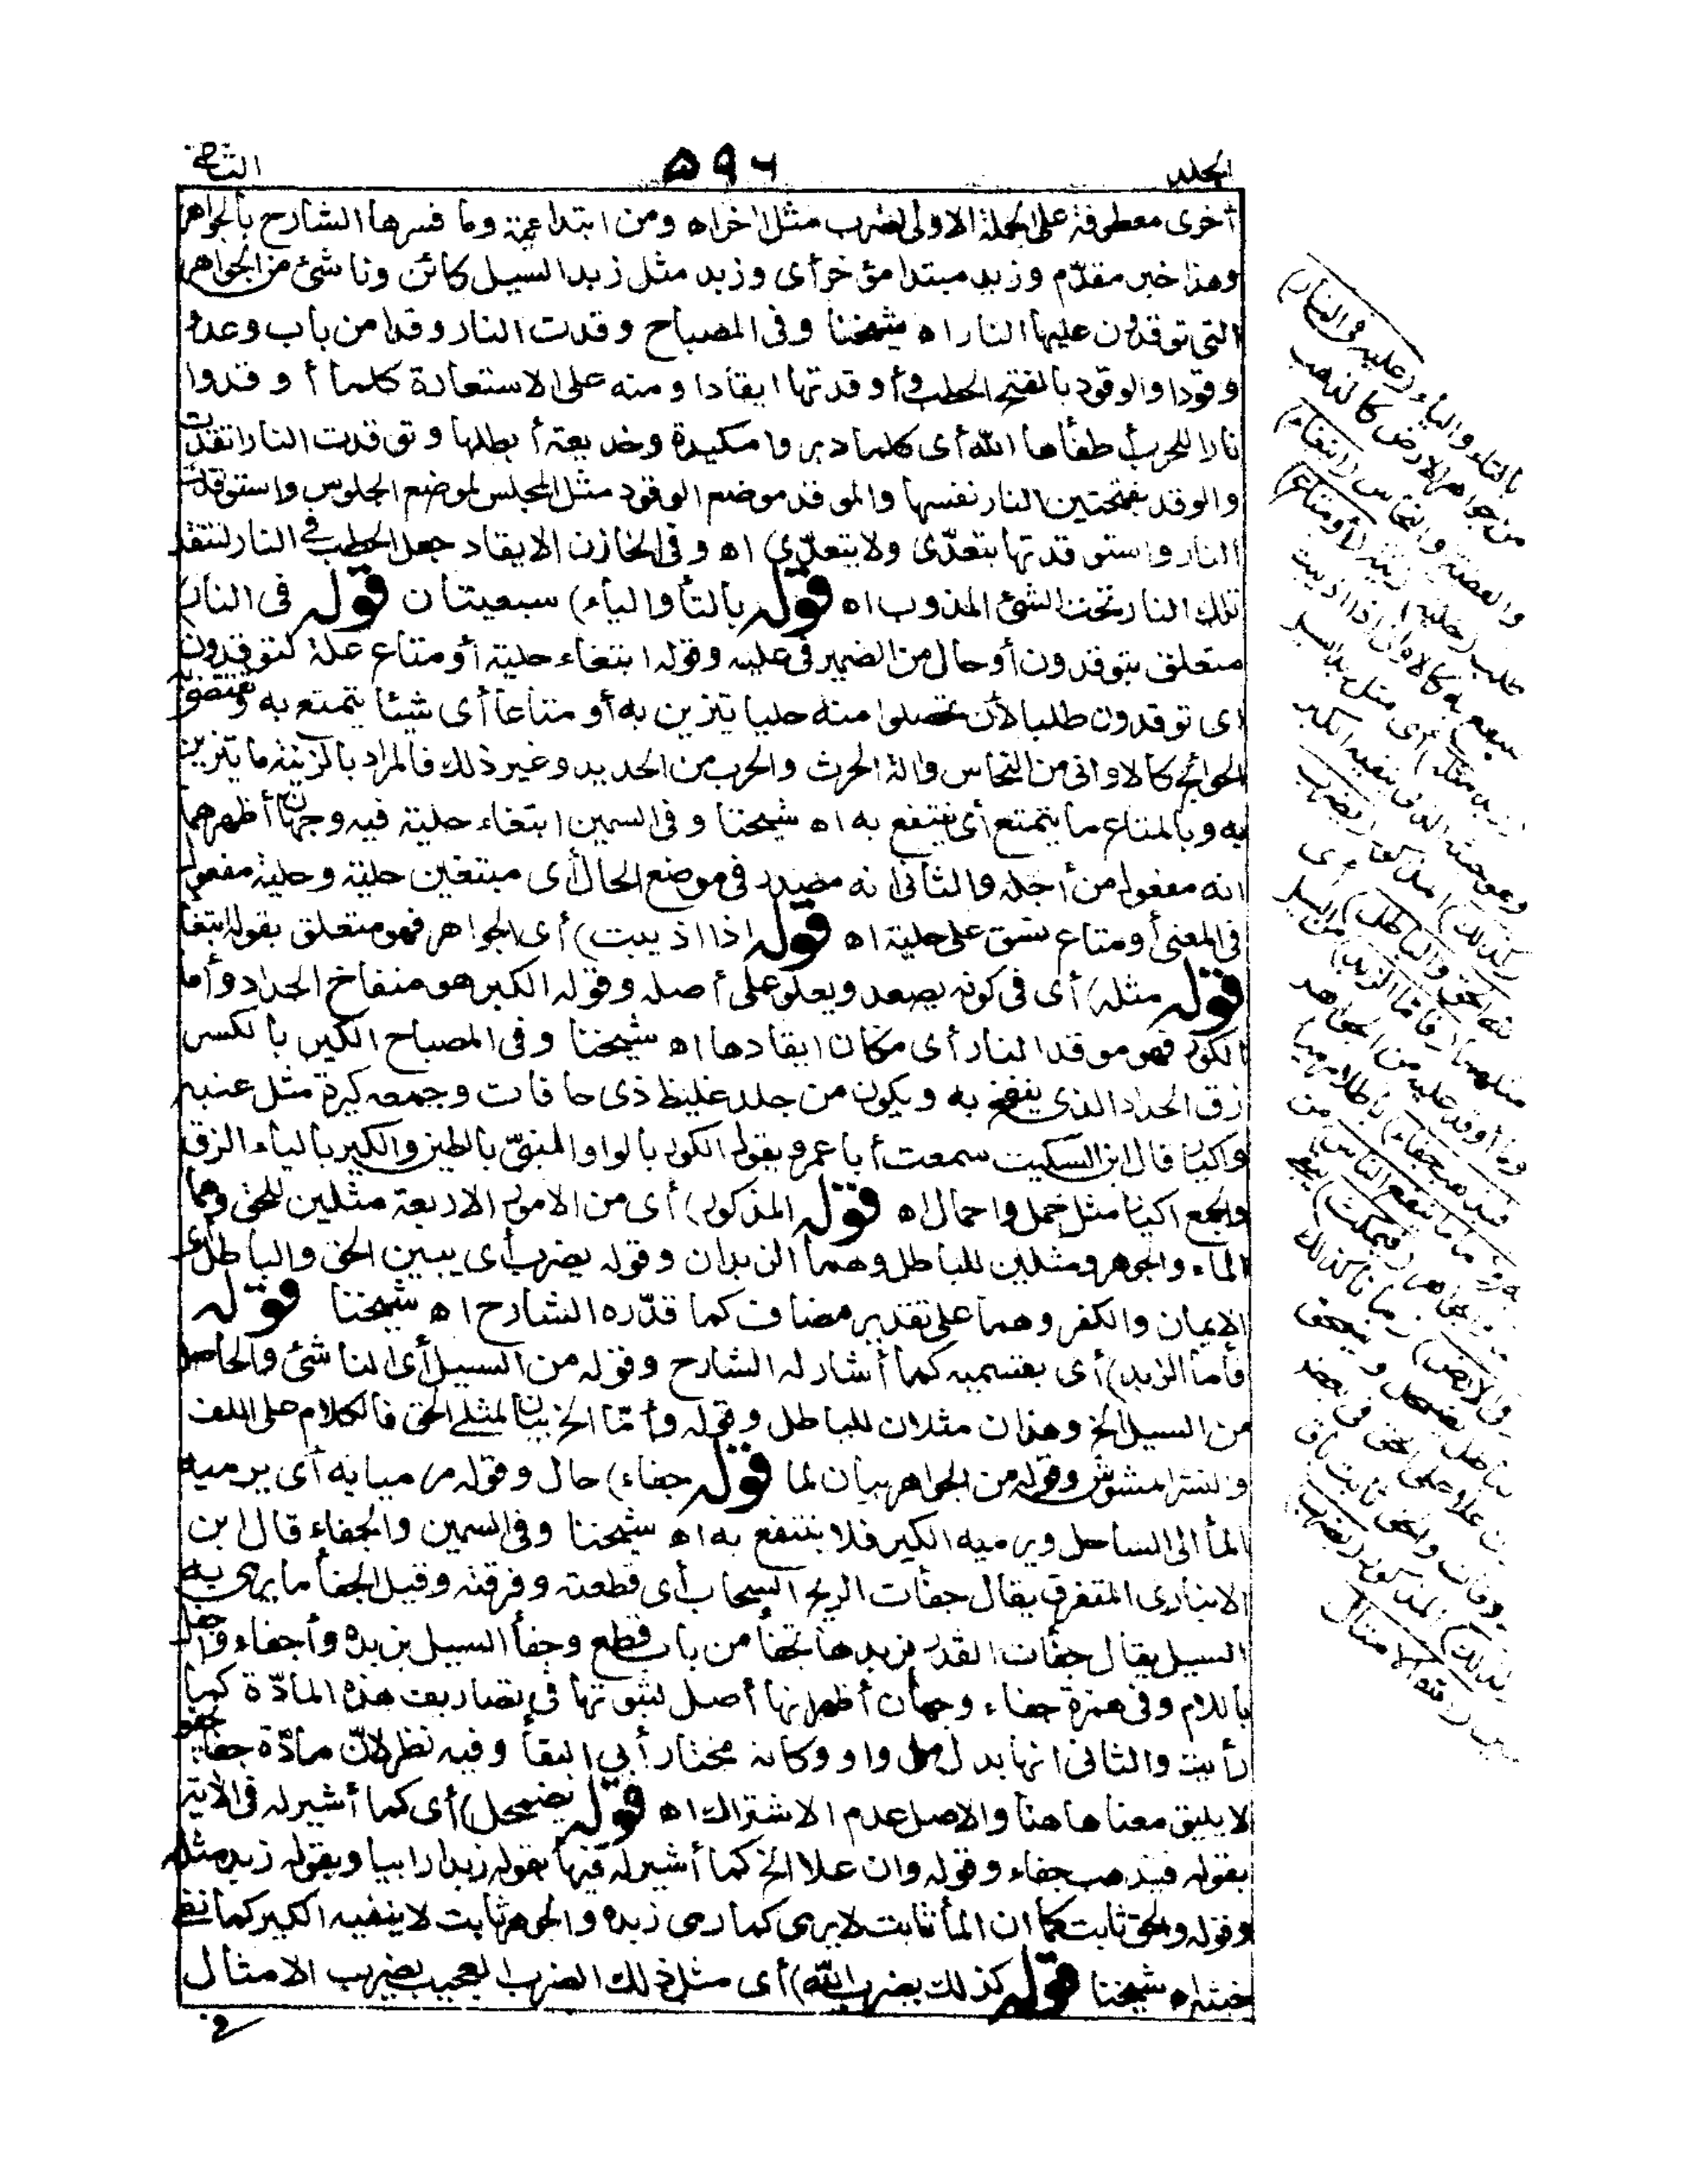 الجلد
٥٩٦
الثانى
أخرى معطوفة على الجملة الاولى لضرب مثل اخر اه ومن ابتدائية وما فسرها الشارح بالجواهر
وهذا خبر مقدّم وزبد مبتدا مؤخر أى وزبد مثل زبد السيل كائن وناشئ من الجواهر
التى توقدون عليها النار اه شيخنا وفى المصباح وقدت النار وقدا من باب وعد و
وقودا والوقود بالفتح الحطب وأوقدتها ايقادا ومنه على الاستعارة كلما أوقدوا
نارا للحرب أطفأها الله أى كلما دبروا مكيدة وخديعة أبطلها وتوقدت النار اتقدت
والوقد بفتحتين النار نفسها والموقد موضع الوقود مثل المجلس لموضع الجلوس واستوقدت
النار واستوقدتها يتعدّى ولا يتعدّى اه وفى الخازن الايقاد جعل الحطب فى النار لتتقد
تلك النار تحت الشئ المذوب اه قوله بالتا والياء) سبعيتان قوله فى النار)
متعلق بتوقدون أو حال من الضمير فى عليه وقوله ابتغاء حلية أو متاع علة لتوقدون
اى توقدون طلبا لأن تحصلوا منه حليا يتزين به أو متاعا أى شيئا يتمتع به وتقتضى به
الحوائج كالاوانى من النحاس والة الحرث والحرب من الحديد وغير ذلك فالمراد بالزينة ما يتزين
به وبالمتاع ما يتمتع أى ينتفع به اه شيخنا وفى السمين ابتغاء حلية فيه وجهان أظهرهما
انه مفعول من أجله والثانى انه مصدر فى موضع الحال أى مبتغين حلية وحلية مفعول
فى المعنى أو متاع نسق على حلية اه قوله اذا اذيبت) أى الجواهر فهو متعلق بقوله ابتغا
قوله مثله) أى فى كونه يصعد ويعلو على أصله وقوله الكير هو منفاخ الحداد وأما
الكور فهو موقد النار أى مكان ايقادها اه شيخنا وفى المصباح الكير بالكسر
زق الحداد الذى ينفخ به ويكون من جلد غليظ ذى حافات وجمعه كيرة مثل عنبة
وأكيار قال ابن السكيت سمعت أبا عمرو يقول الكور بالواو المبنىّ بالطين والكير بالياء الزق
والجمع اكيار مثل حمل واحمال اه قوله المذكور) أى من الامور الاربعة مثلين للحق وهما
الماء والجوهر ومثلين للباطل وهما الزبدان وقوله يضرب أى يبين الحق والباطل أى
الايمان والكفر وهما على تقدير مضاف كما قدّره الشارح اه شيخنا قوله
فأما الزبد) أى بقسميه كما أشار له الشارح وقوله من السيل أى الناشئ والحاصل
من السيل الخ وهذان مثلان للباطل وقوله وأمّا الخ بيان لمثلى الحق فالكلام على اللف
والنشر المشوّش وقوله من الجواهر بيان لما قوله جفاء) حال وقوله مرميا به أى يرميه
الماء الى الساحل ويرميه الكير فلا ينتفع به اه شيخنا وفى السمين والجفاء قال ابن
الانبارى المتفرق يقال جفأت الريح السحاب أى قطعته وفرقته وقيل الجفأ ما يرمى به
السيل يقال جفأت القدر بزبدها تجفأ من باب قطع وجفأ السيل بزبده وأجفاء وأجفل
باللام وفى همزة جفاء وجهان أظهرهما أنها أصل لثبوتها فى تصاريف هذه المادّة كما
رأيت والثانى انها بدل من واو وكانه مختار أبى البقاء وفيه نظر لانّ مادّة جفا يجفو
لا يليق معناها هنا والاصل عدم الاشتراك اه قوله يضمحل) أى كما أشير له فى الاية
بقوله فيذهب جفاء وقوله وان علا الخ كما أشير له فيها بقوله زبدا رابيا وبقوله زبد مثله
وقوله والحق ثابت كما ان الماء ثابت لا يرمى كما رمى زبده والجوهر ثابت لا ينفيه الكير كما نفى
خبثه اه شيخنا قوله كذلك يضرب الله) أى مثل ذلك الضرب العجيب يضرب الامثال
فى
بالتاء والياء (عليه فى النار)
من جواهر الارض كالذهب
والفضة والنحاس (ابتغاء)
طلب (حلية) زينة (أو متاع)
ينتفع به كالاوانى اذا اذيبت
(زبد مثله) أى مثل زبد السيل
وهو خبثه الذى ينفيه الكير
(كذلك) المذكور (يضرب
الله الحق والباطل) أى
مثلهما (فاما الزبد) من السيل
وما أوقد عليه من الجواهر
(فيذهب جفاء) باطلا مرميا
به (وأما ما ينفع الناس) من
الماء والجواهر (فيمكث) يبقى
(فى الارض) زمانا كذلك
الباطل يضمحل وينمحق
وان علا على الحق فى بعض
الاوقات والحق ثابت باق
(كذلك) المذكور (يضرب)
يبين (الله الامثال